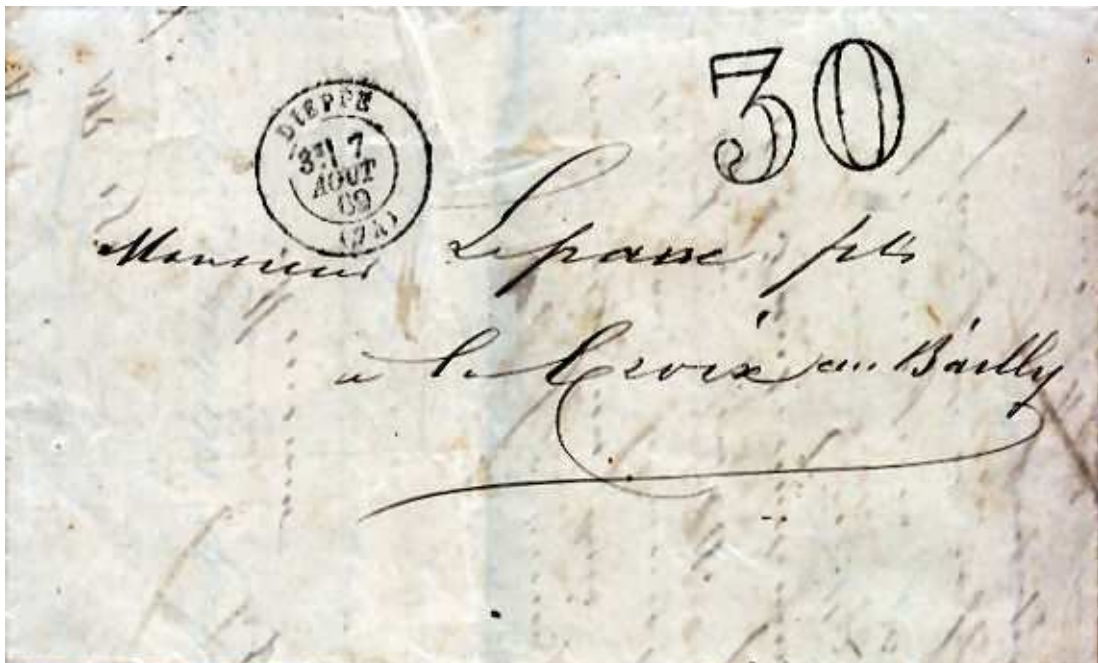 30
DIEPPE
3E/ 7
AOUT
69
(74)
Monsieur Lepasse fils
à la Croix au Bailly